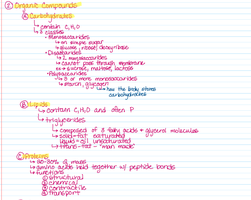 ② Organic Compounds
Ⓐ Carbohydrates
↳ contain C, H, O
↳ 3 classes
• Monosaccharides
↳ one simple sugar
↳ glucose, ribose, deoxyribose
• Disaccharides
↳ 2 monosaccharides
↳ cannot pass through membrane
↳ ex → sucrose, maltose, lactose
• Polysaccharides
↳ 3 or more monosaccharides
↳ starch, glycogen
↳ how the body stores
carbohydrates
Ⓑ Lipids
↳ contain C, H, O and often P
↳ triglycerides
↳ composed of 3 fatty acids + glycerol molecules
↳ solid = fat saturated
↳ liquid = oil unsaturated
↳ trans-fat - "man made"
Ⓒ Proteins
↳ 10-30% of mass
↳ amino acids held together w/ peptide bonds
↳ functions
① structural
② chemical
③ contractile
④ transport